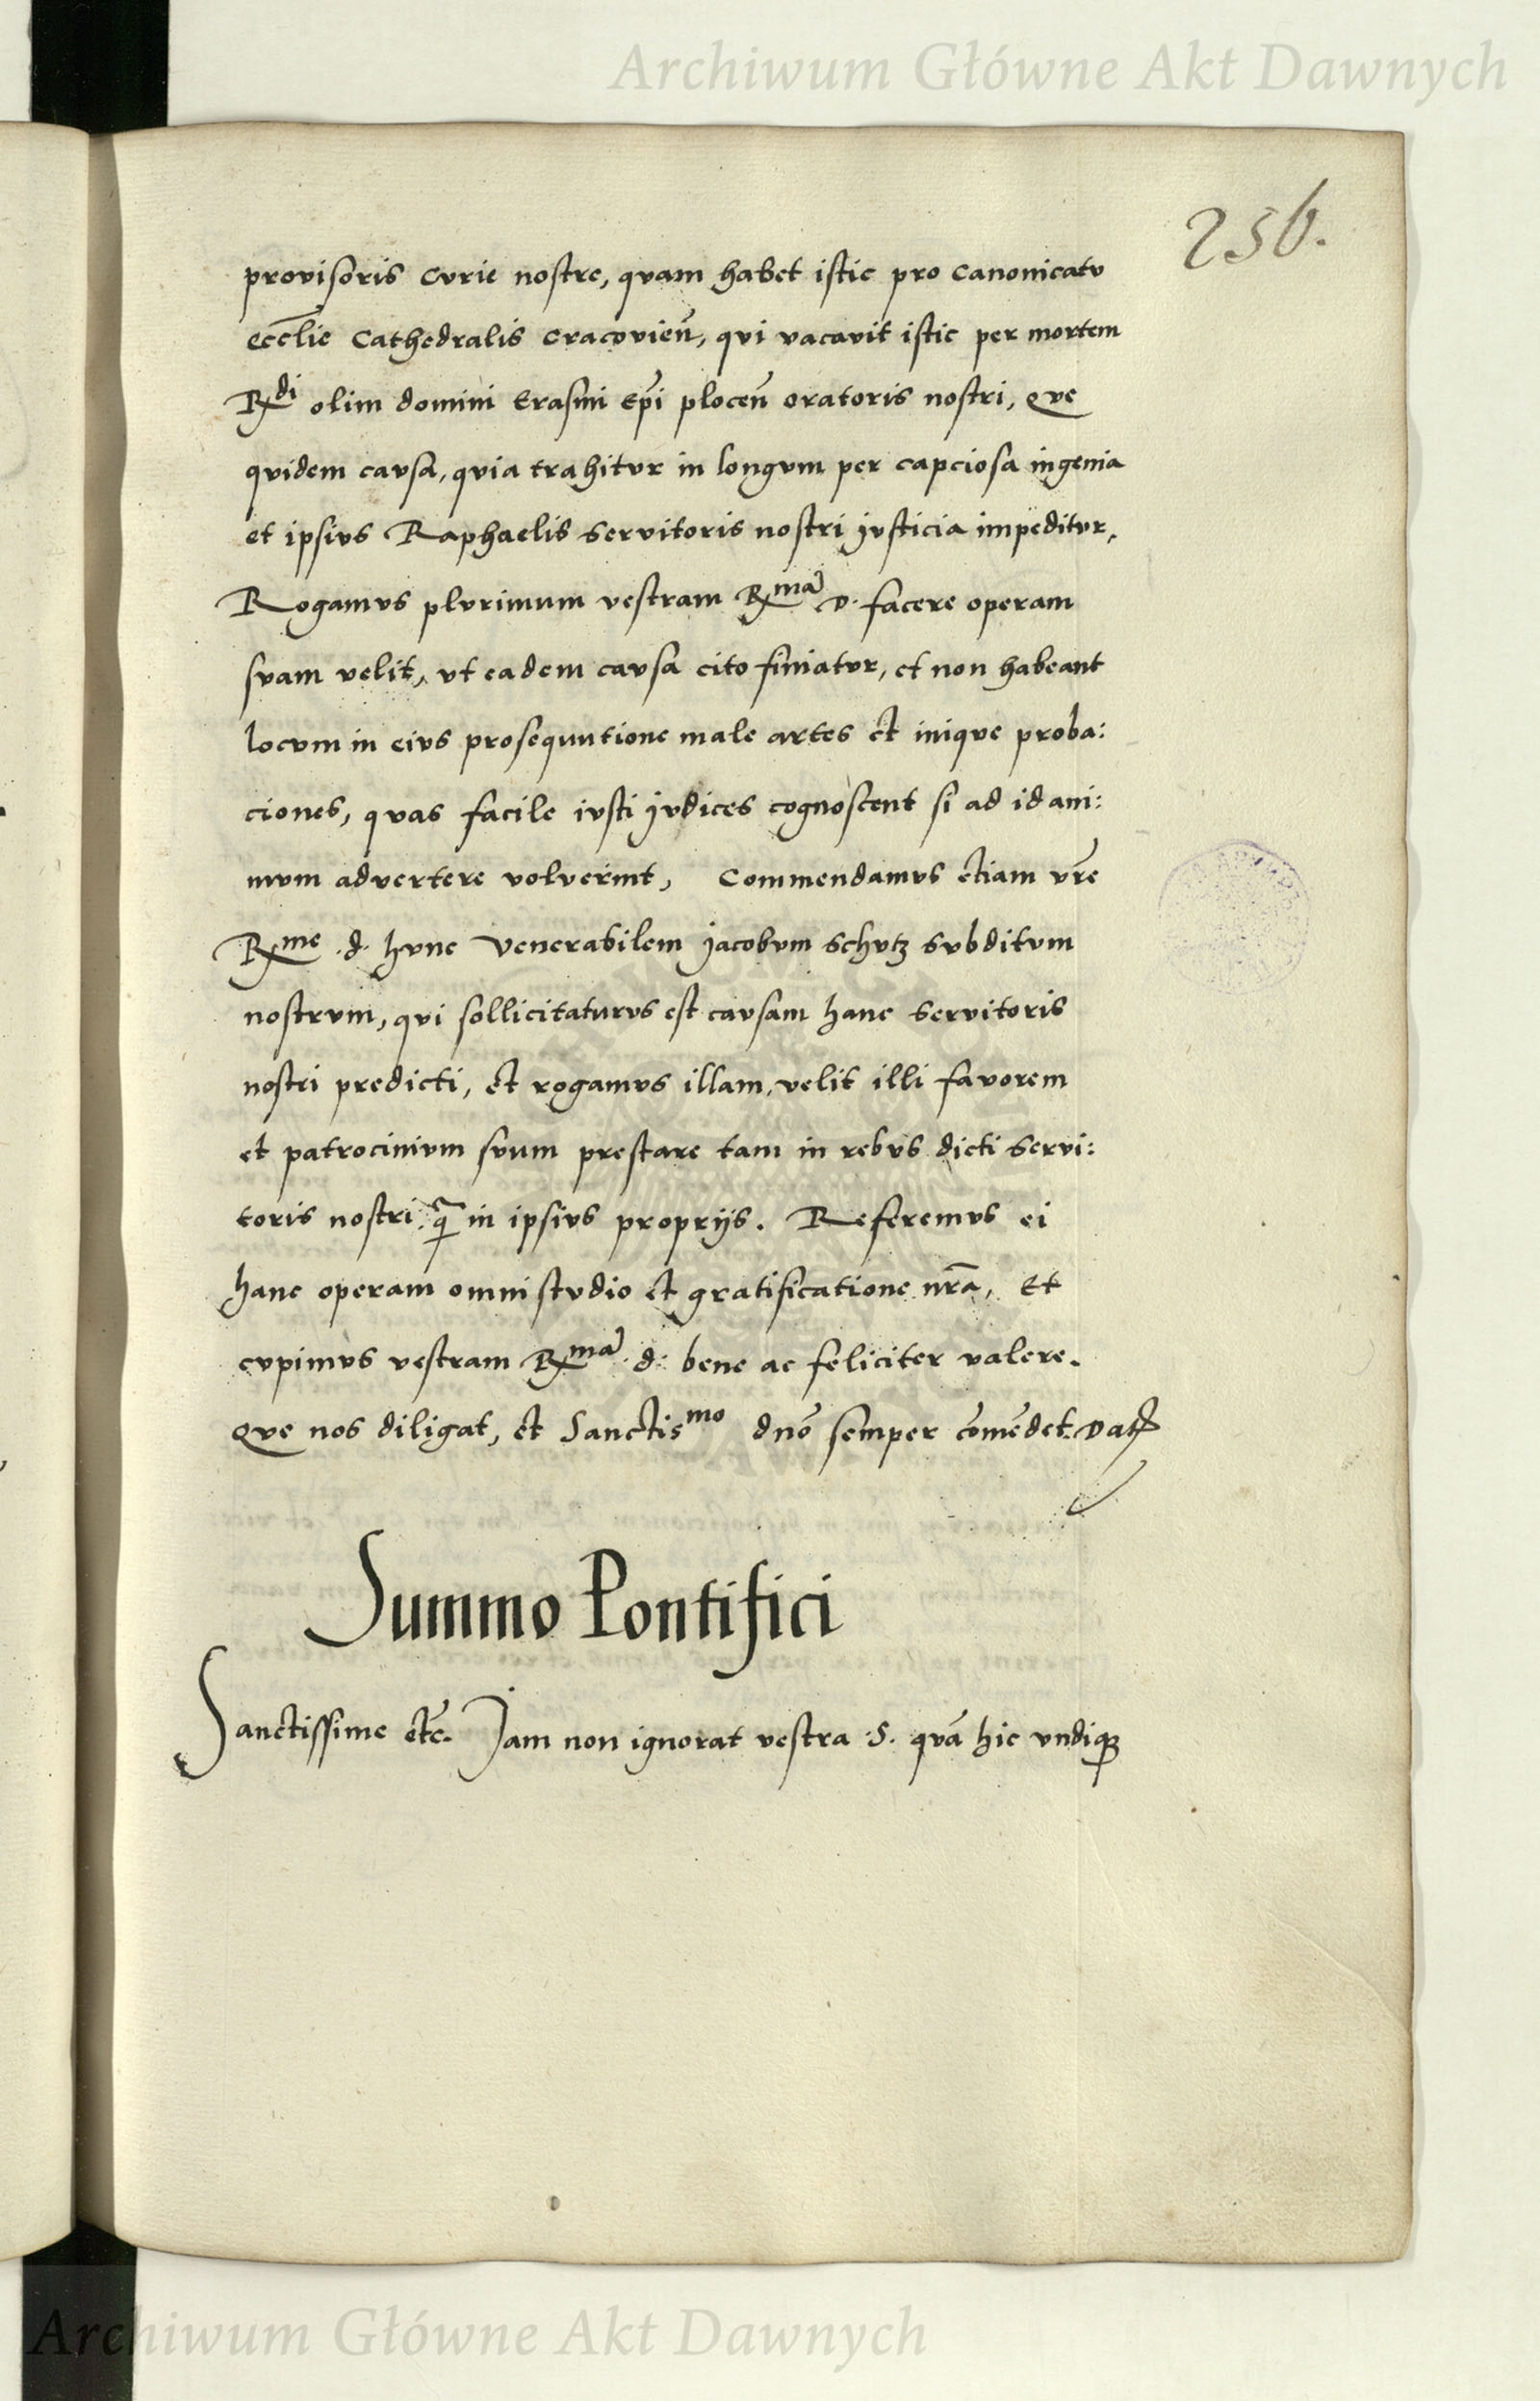 Archiwum Główne Akt Dawnych
256.
provisoris curie nostre, quam habet istic pro canonicatu
eccłie Cathedralis Cracovieñ, qui vacavit istic per mortem
Rdi olim domini Erasmi Epĩ ploceñ oratoris nostri, Que
quidem causa, quia trahitur in longum per capciosa ingenia
et ipsius Raphaelis servitoris nostri justicia impeditur,
Rogamus plurimum vestram Rma D. facere operam
suam velit, ut eadem causa cito finiatur, et non habeant
locum in eius prosequutione male artes et inique proba:
ciones, quas facile iusti judices cognoscent si ad id ani:
mum advertere voluerint, Commendamus etiam vr̃e
Rme .d. hunc Venerabilem jacobum Schutz subditum
nostrum, qui sollicitaturus est causam hanc servitoris
nostri predicti, et rogamus illam, velit illi favorem
et patrocinium suum prestare tam in rebus dicti servi:
toris nostri, q̃ in ipsius proprijs. Referemus ei
hanc operam omni studio et gratificatione nr̃a, Et
cupimus vestram Rma .d. bene ac feliciter valere.
Que nos diligat, et Sanctismo dnõ semper cõmẽdet. Dat
Summo Pontifici
Sanctissime etc̃. Jam non ignorat vestra .S. quã hic undiqz
Archiwum Główne Akt Dawnych